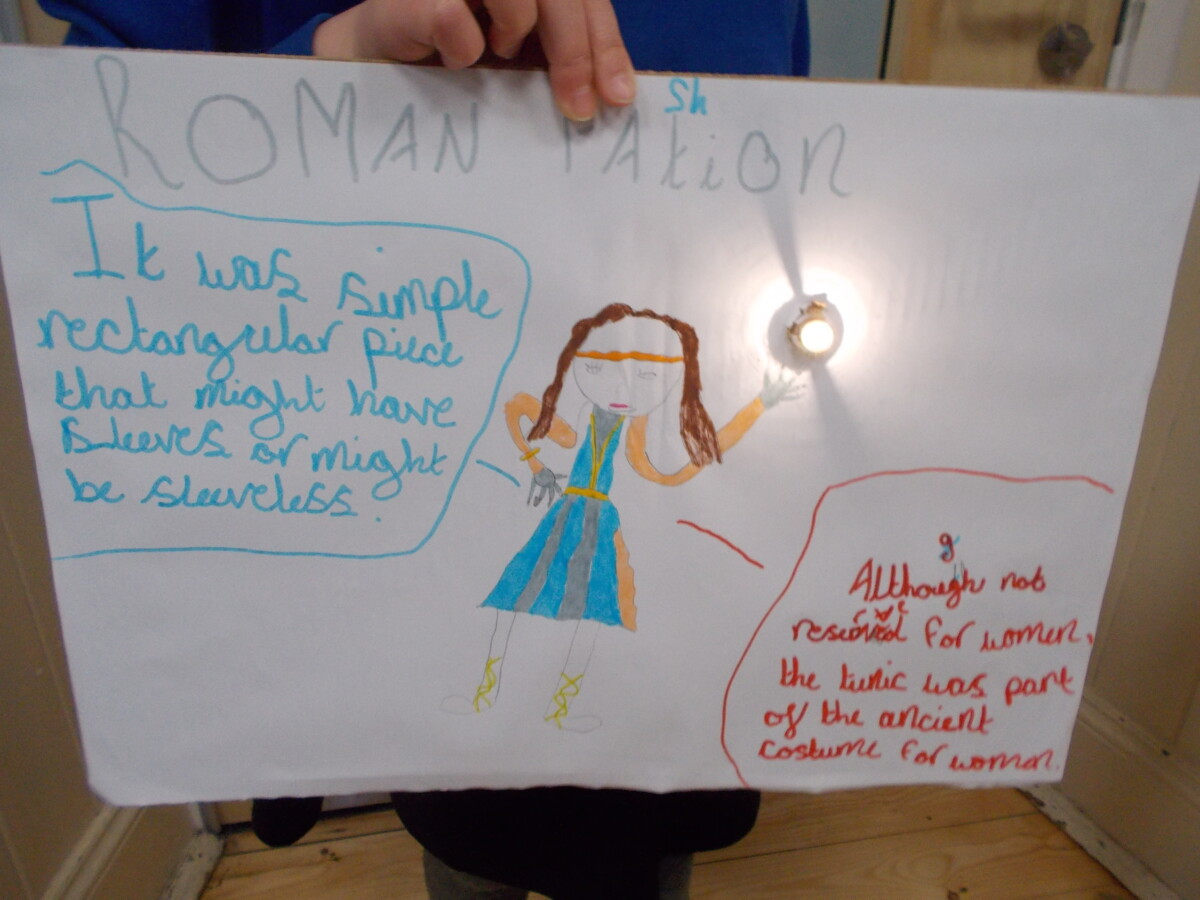 ROMAN FAtiOn
Sh
It was simple
rectangular piece
that might have
sleeves or might
be sleeveless.
g
Although not
reserved for women,
the tunic was part
of the ancient
costume for women.